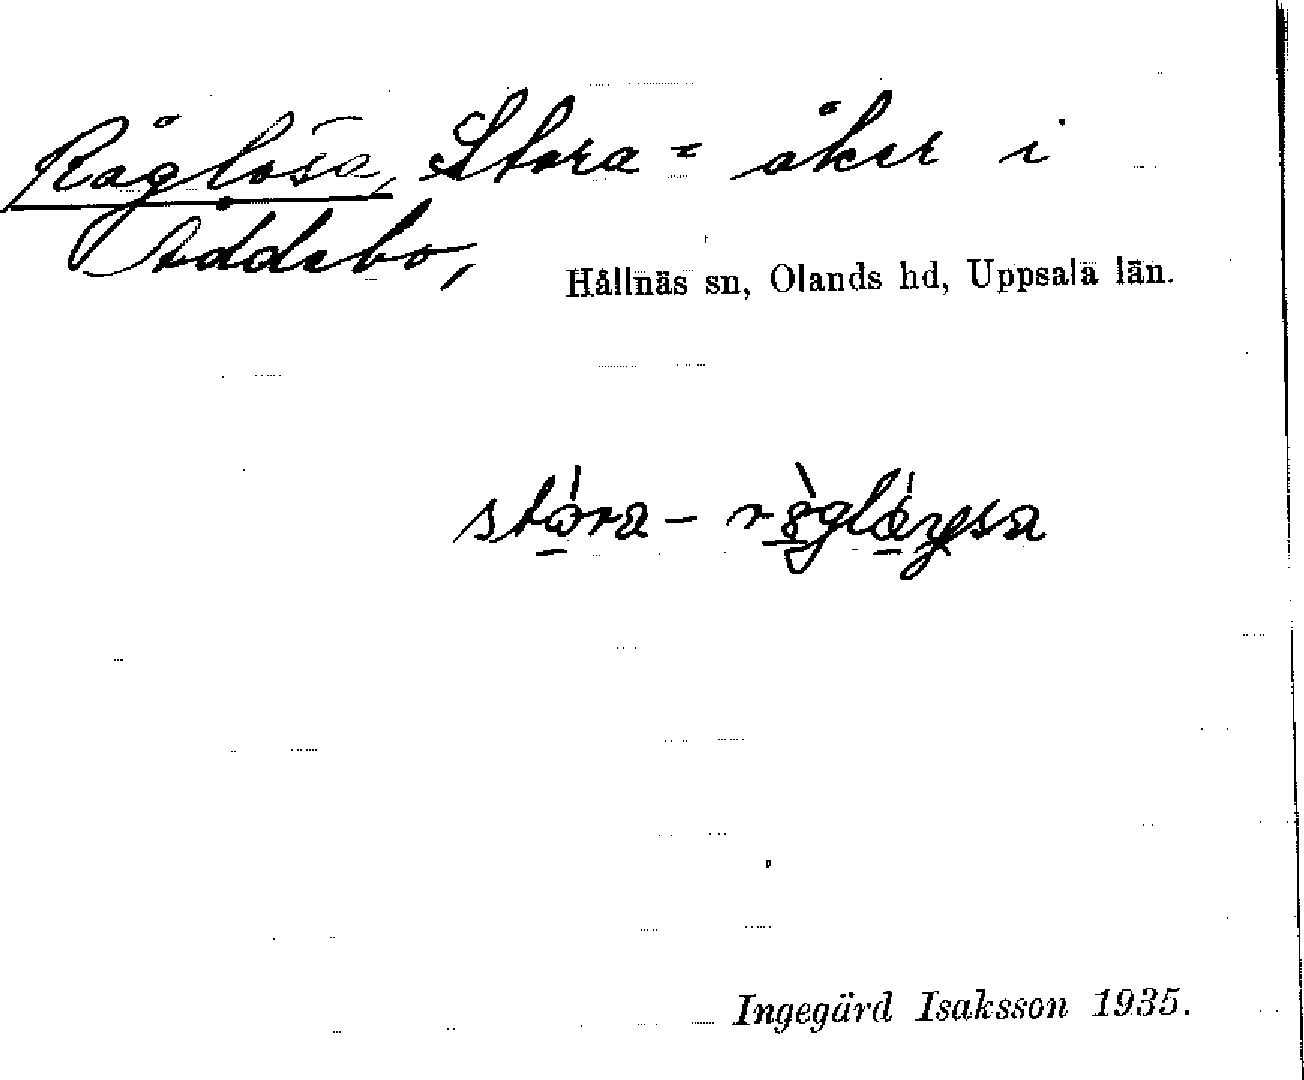 Råglösa, Stora = åker i
Väddebo,
Hållnäs sn, Olands hd, Uppsala län.
Ingegärd Isaksson 1935.